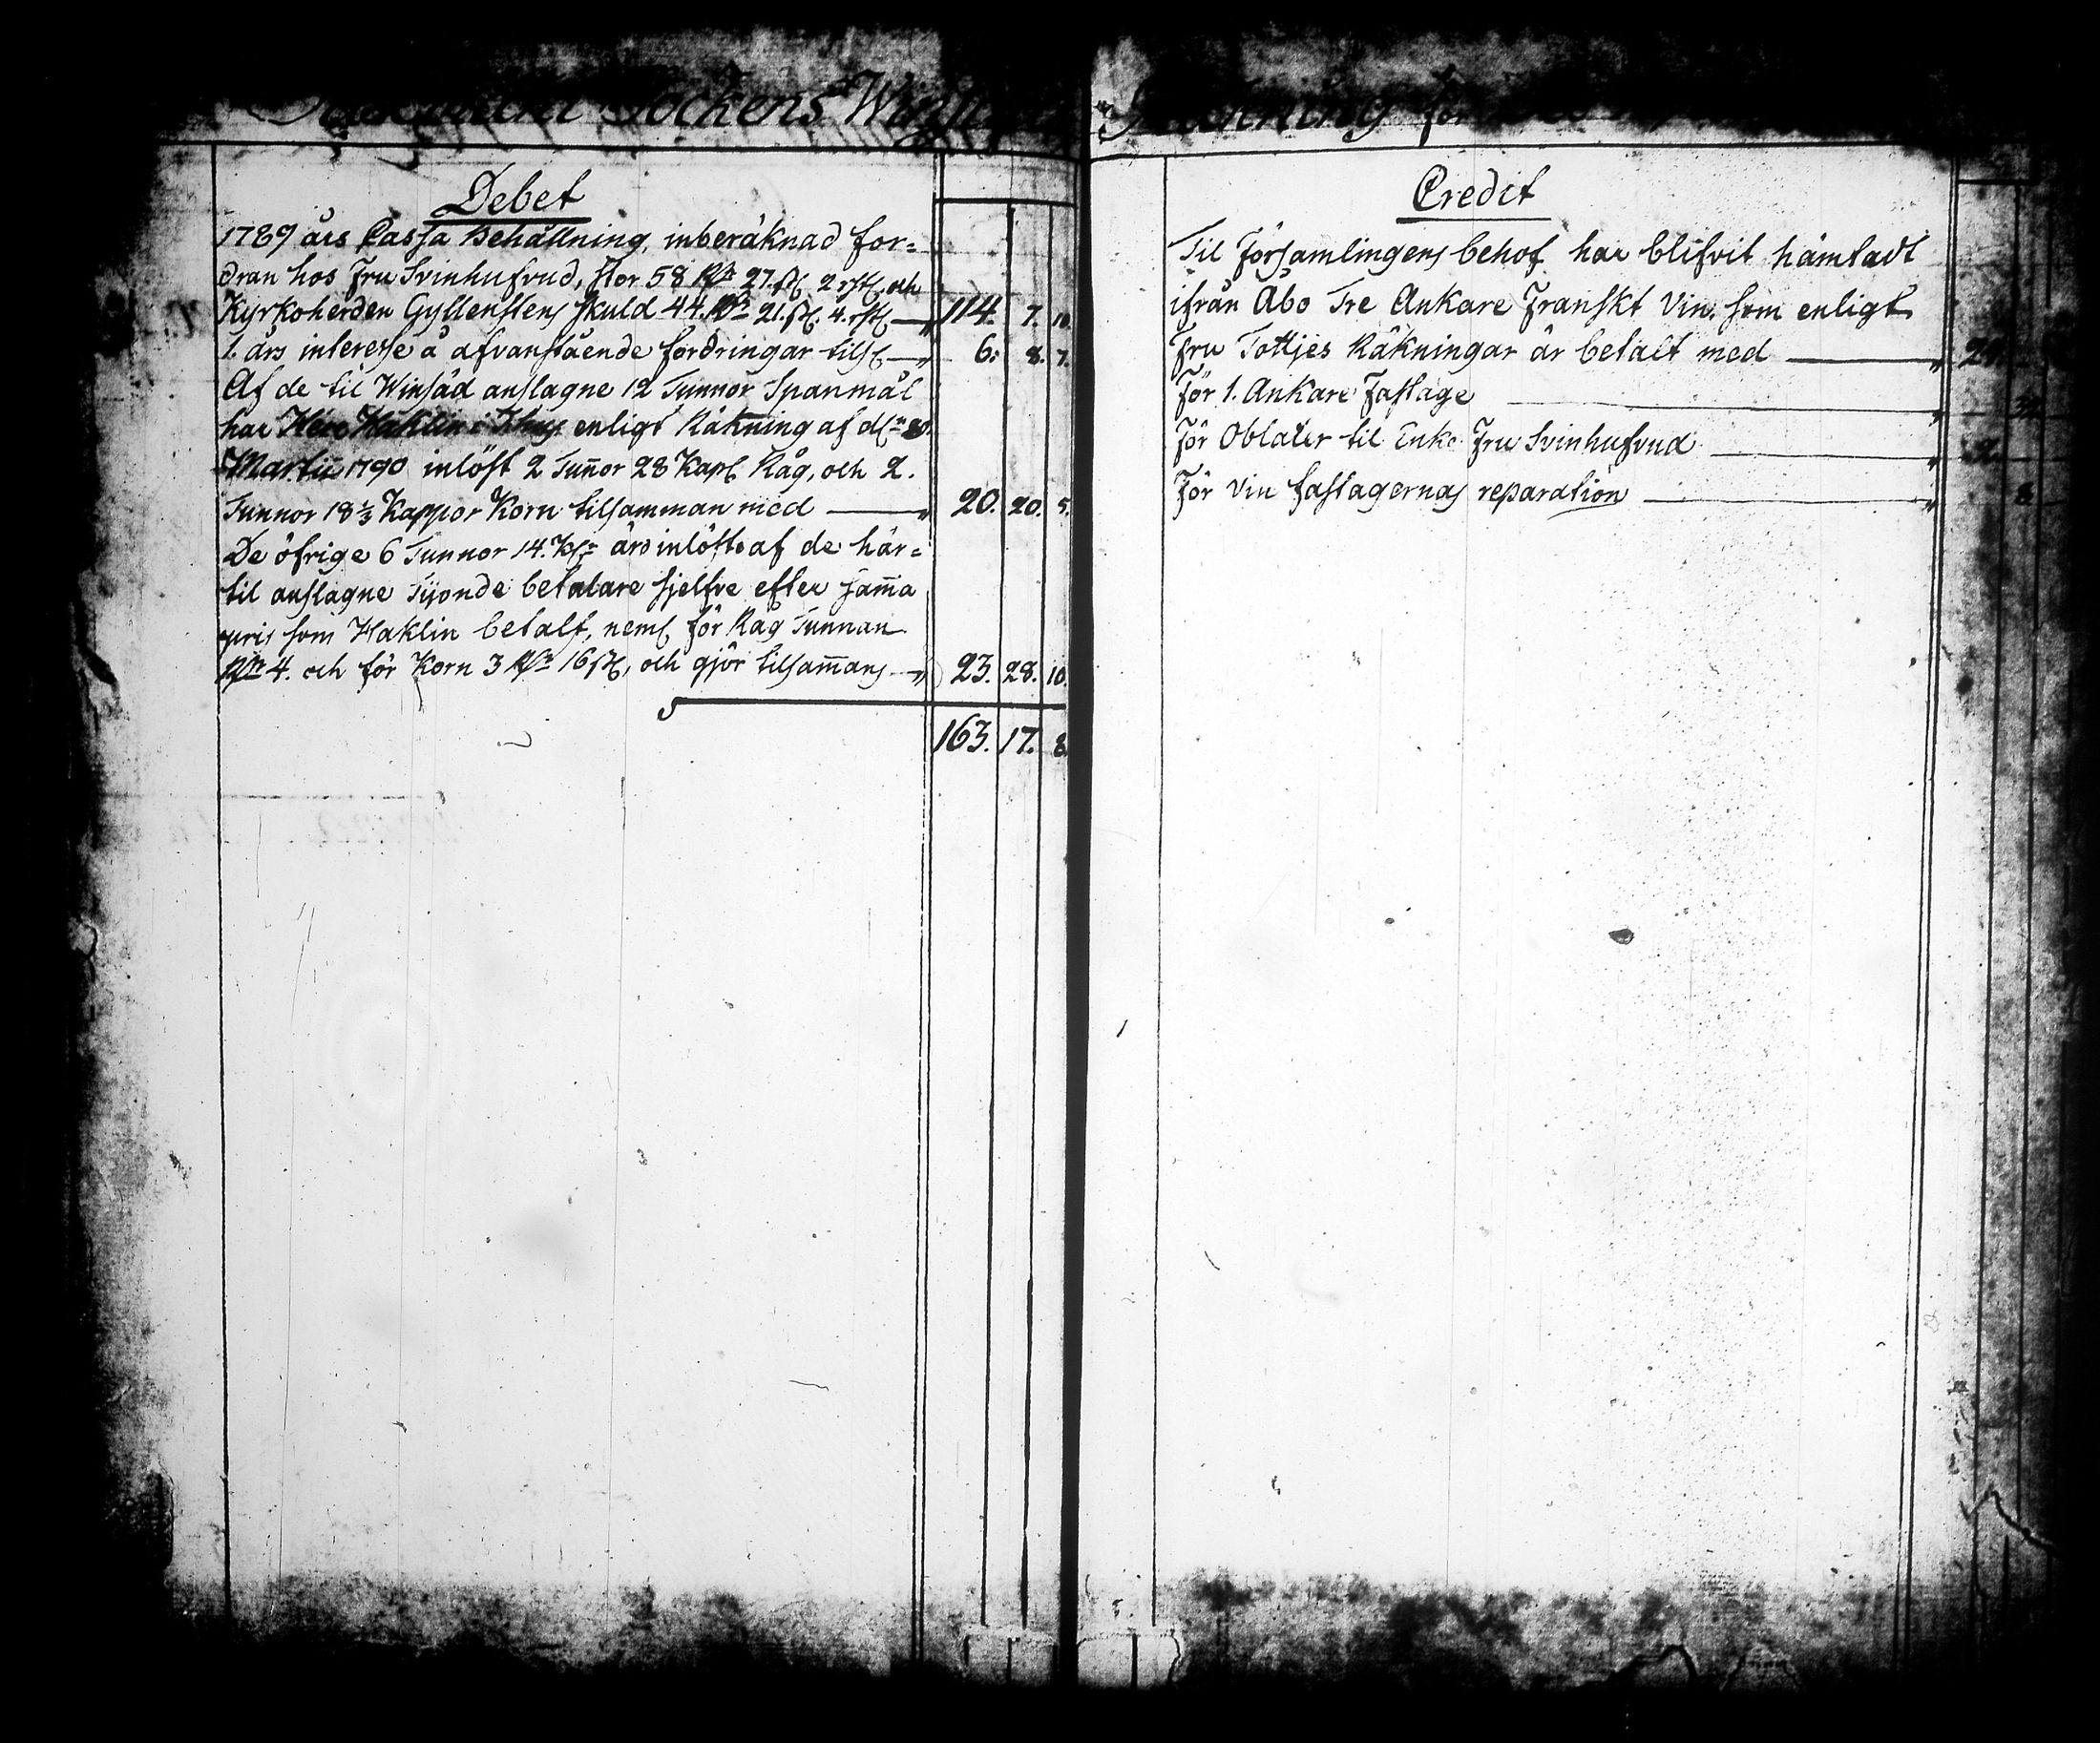 Sockens Räkning för
Debet
1789 års Cassa Behållning, inberäknad for=
dran hos Fru Svinhufvud, stor 58 Rdr 27. sk 2 rst och
Kyrkoherden Gyllenstens skuld 44. Rdr 21. sk. 4. rst — " 114. 7. 10.
1. års interesse å afvanstående fordringar tils — " 6. 8. 7.
Af de til Winsäd anslagne 12 Tunnor Spanmål
har Herr Haklin i enligt Räkning af d.
Martii 1790 inlöst 2 Tunnor 28 Kap Råg, och 2.
Tunnor 18 1/3 Kappor Korn tilsamman med — " 20. 20. 5.
De öfrige 6 Tunnor 14. Kr äro inlöste af de här=
til anslagne Tijonde betalare sjelfve efter samma
pris som Haklin betalt, neml för Råg Tunnan
Rdr 4. och för Korn 3 Rdr 16 sk, och gjör tilsammans — " 23. 28. 10.
163. 17. 8.
Credit
Til Församlingens behof har blifvit hämtadt
ifrån Åbo Tre Ankare Franskt Vin. som enligt
Fru Tottjes Räkningar är betalt med — "
För 1. Ankare Fastage — "
För Oblater til Enke Fru Svinhufvud — "
För Vin fastagernas reparation — " 8